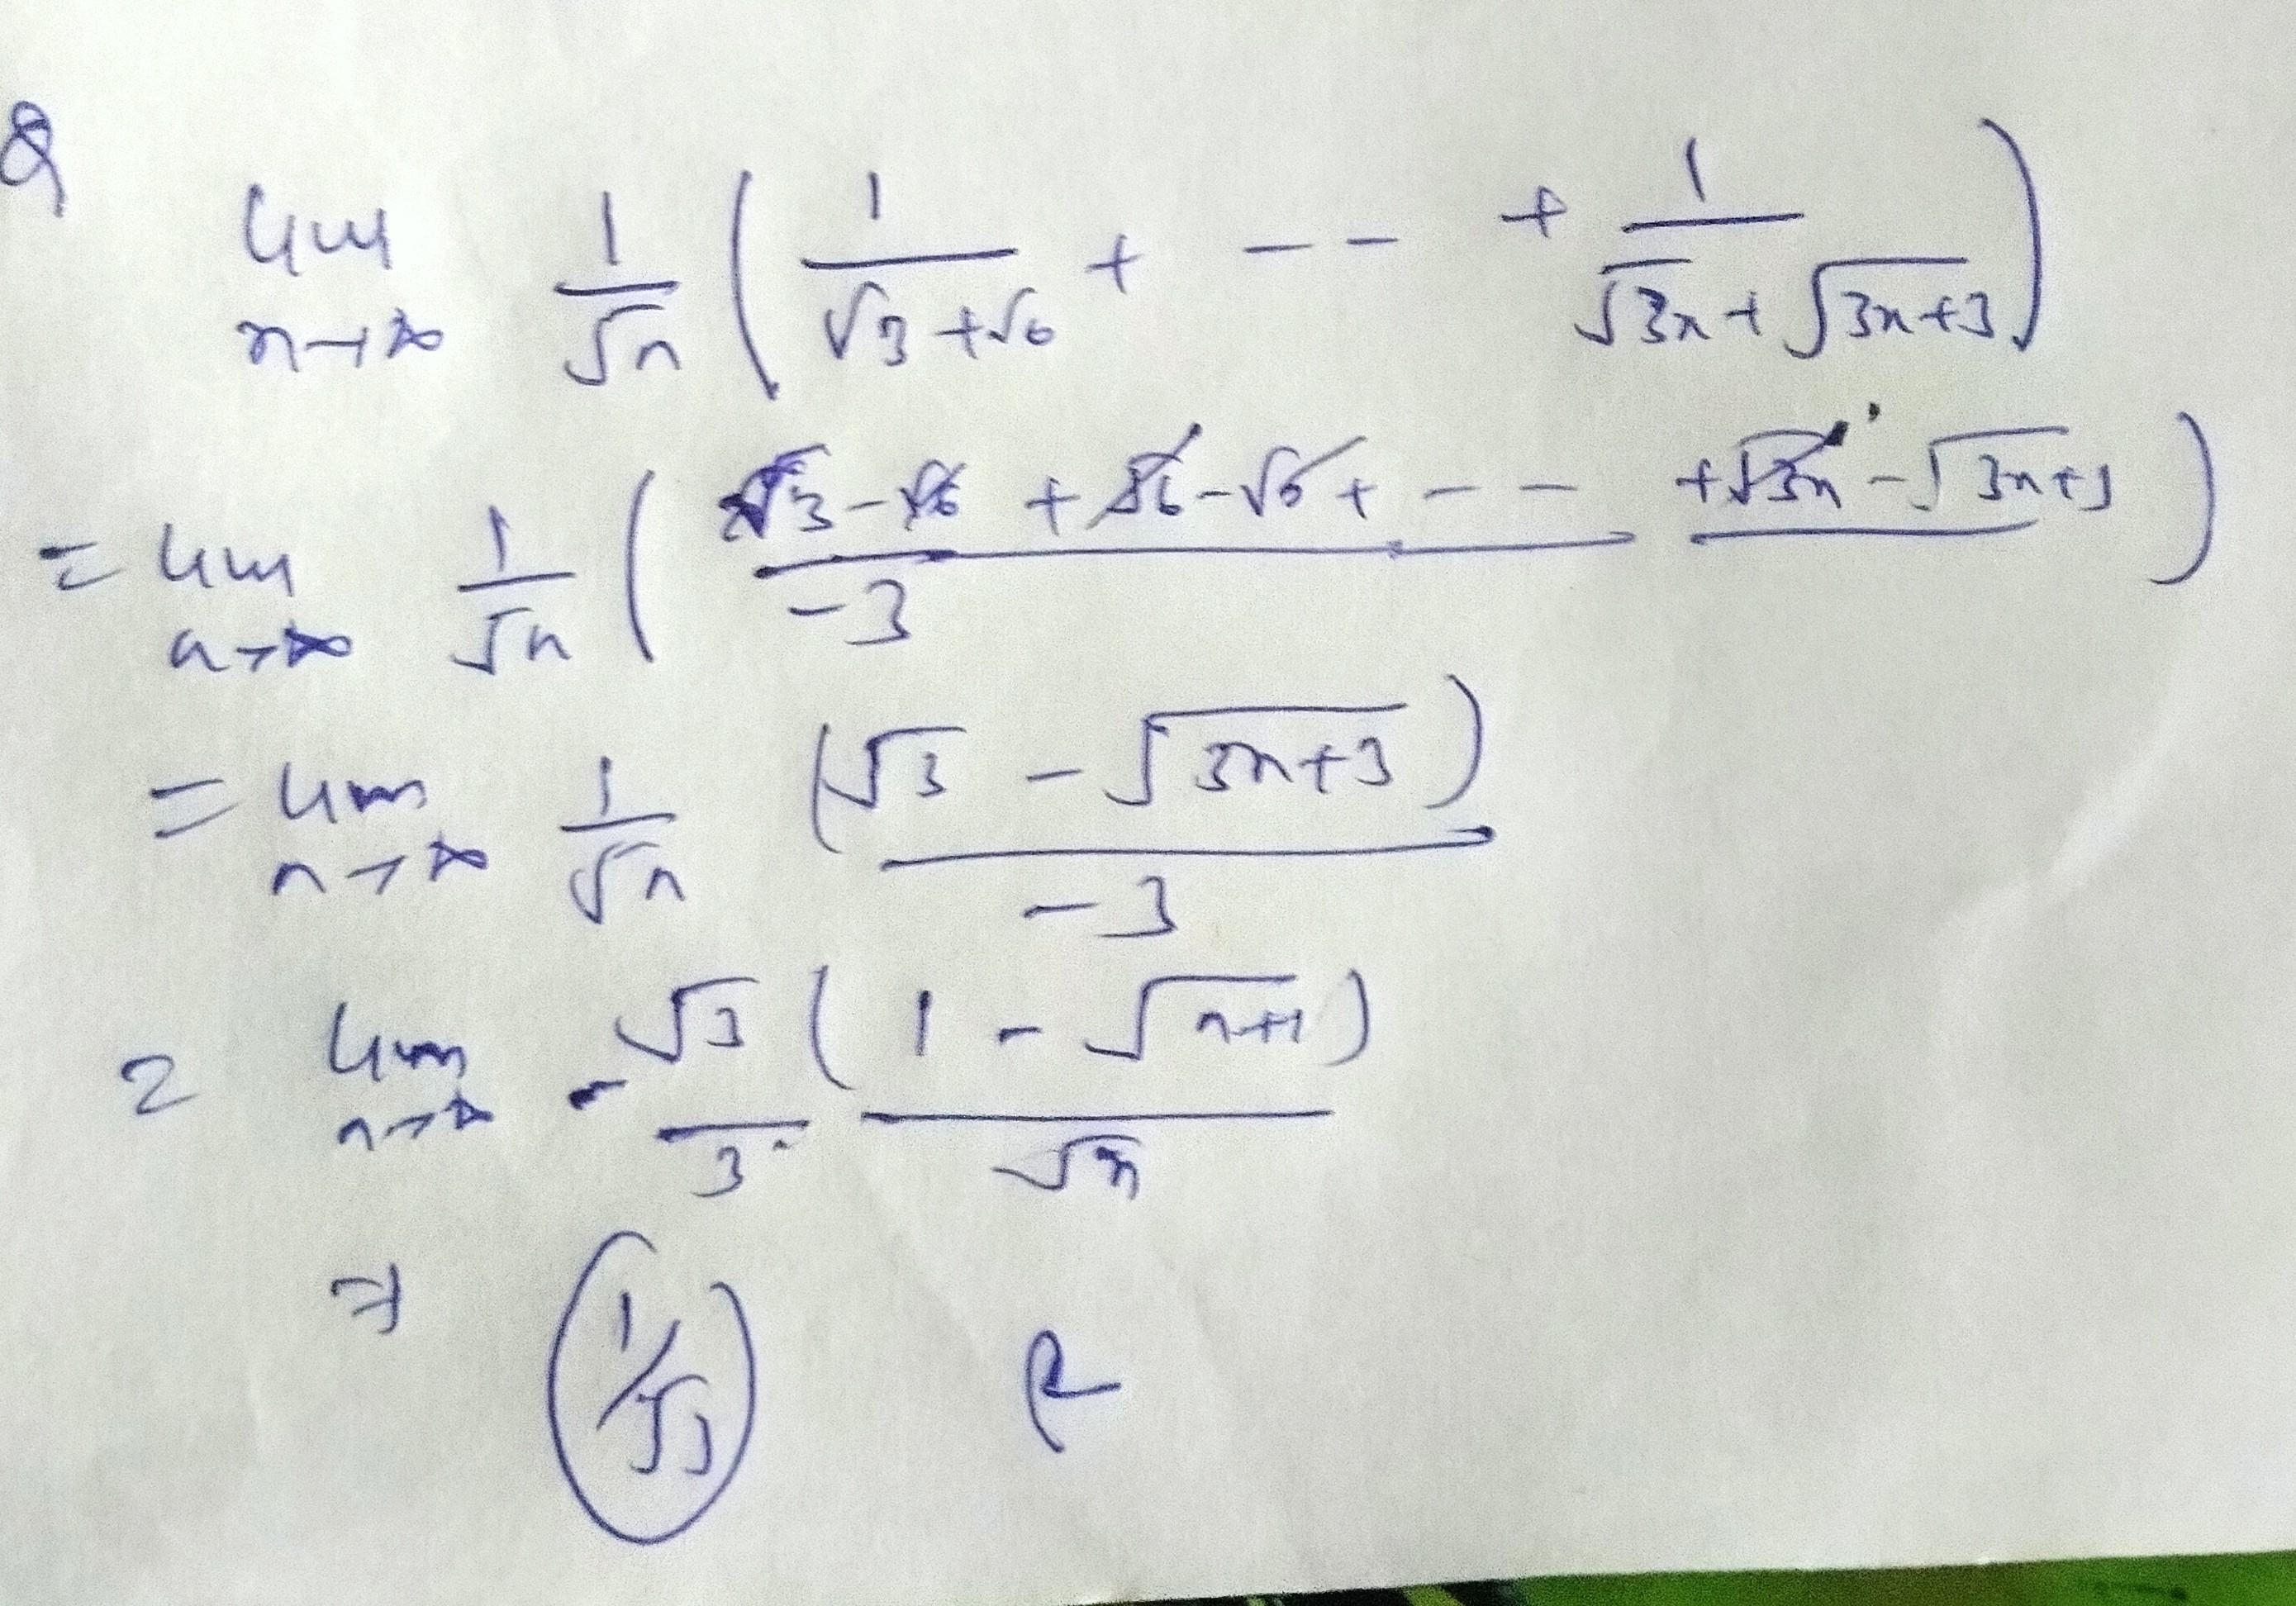 Q
lim n→∞ 1/√n ( 1/(√3+√6) + -- + 1/(√3n+√(3n+3)) )
= lim n→∞ 1/√n ( (√3-√6 + √6-√6 + -- +√3n-√(3n+3))/-3 )
= lim n→∞ 1/√n (√3-√(3n+3))/-3
= lim n→∞ -√3/3 (1-√(n+1))/√n
⇒ 1/√3